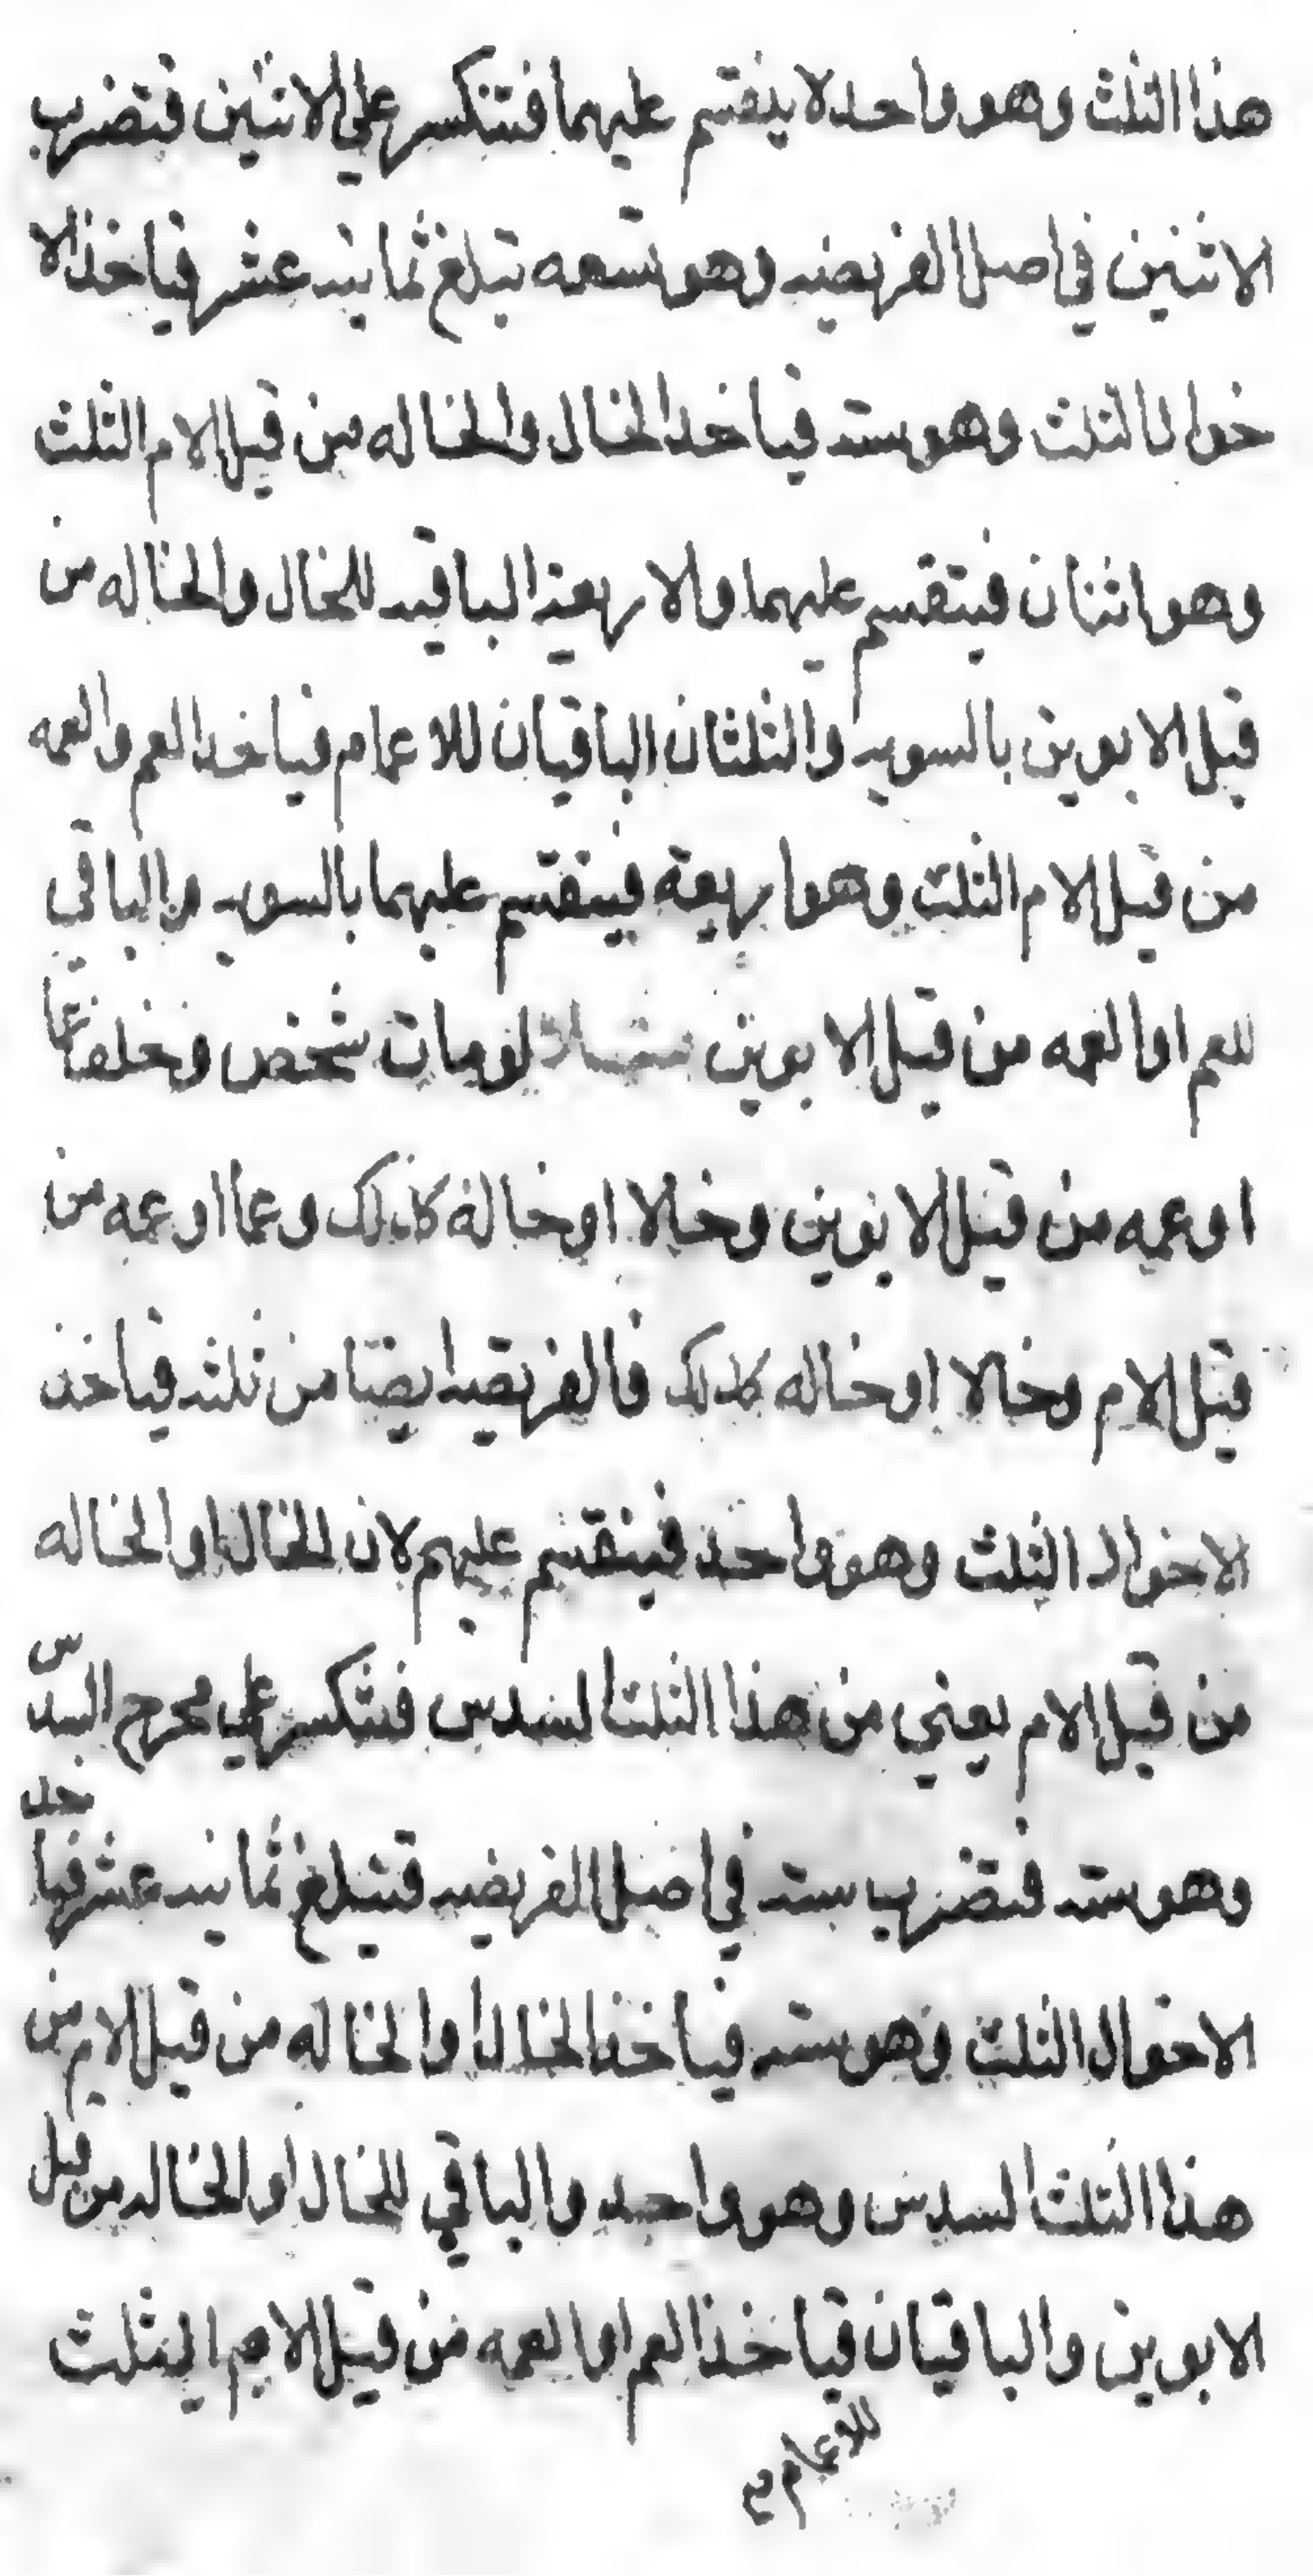 هذا الثلث وهو واحد لا ينقسم عليهما فتنكسر علي الاثنين فتضرب
الاثنين في اصل الفريضه وهو تسعه تبلغ ثمانيه عشر فياخذ الا
خوال الثلث وهو سته فياخد الخال والخاله من قبل الام الثلث
وهو اثنان فيتقسم عليهما والاربعة الباقيه للخال والخاله من
قبل الابوين بالسويه والثلثان الباقيان للاعمام فياخد العم والعمه
من قبل الام الثلث وهو اربعة فينقسم عليهما بالسويه والباقي
للعم او العمه من قبل الابوين لو مات شخص وخلف عما
او عمه من قبل الابوين وخالا او خالة كذلك وعما او عمه من
قبل الام وخالا او خاله كذلك فالفريضه ايضا من ثلثه فياخذ
الاخوال الثلث وهو واحد فينقسم عليهم لان للخال او الخاله
من قبل الام يعني من هذا الثلث السدس فتنكسر علي مخرج السدس
وهو سته فتضرب سته في اصل الفريضه فتبلغ ثمانيه عشر فياخد
الاخوال الثلث وهو سته فياخذ الخال او الخاله من قبل الام من
هذا الثلث السدس وهو واحد والباقي للخال او الخاله من قبل
الابوين والباقيان فياخذ العم او العمه من قبل الام الثلث
للاعمام صح